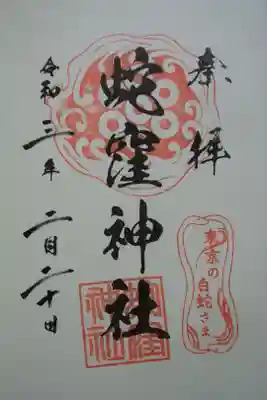 奉拝
東京の
白蛇さま
蛇窪神社
蛇窪
神社
令和三年二月二十日